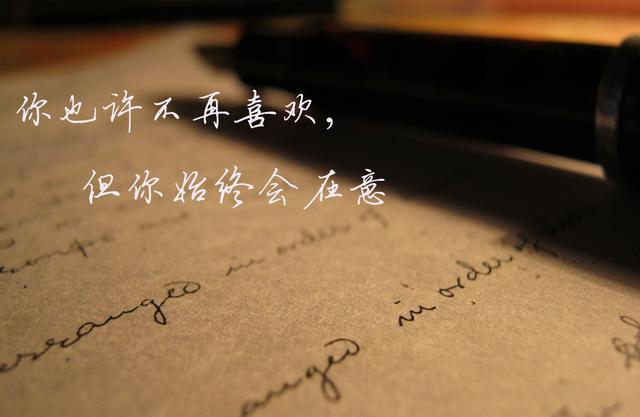 你也许不再喜欢，
但你始终会在意
in order of
arranged
in order of
anged